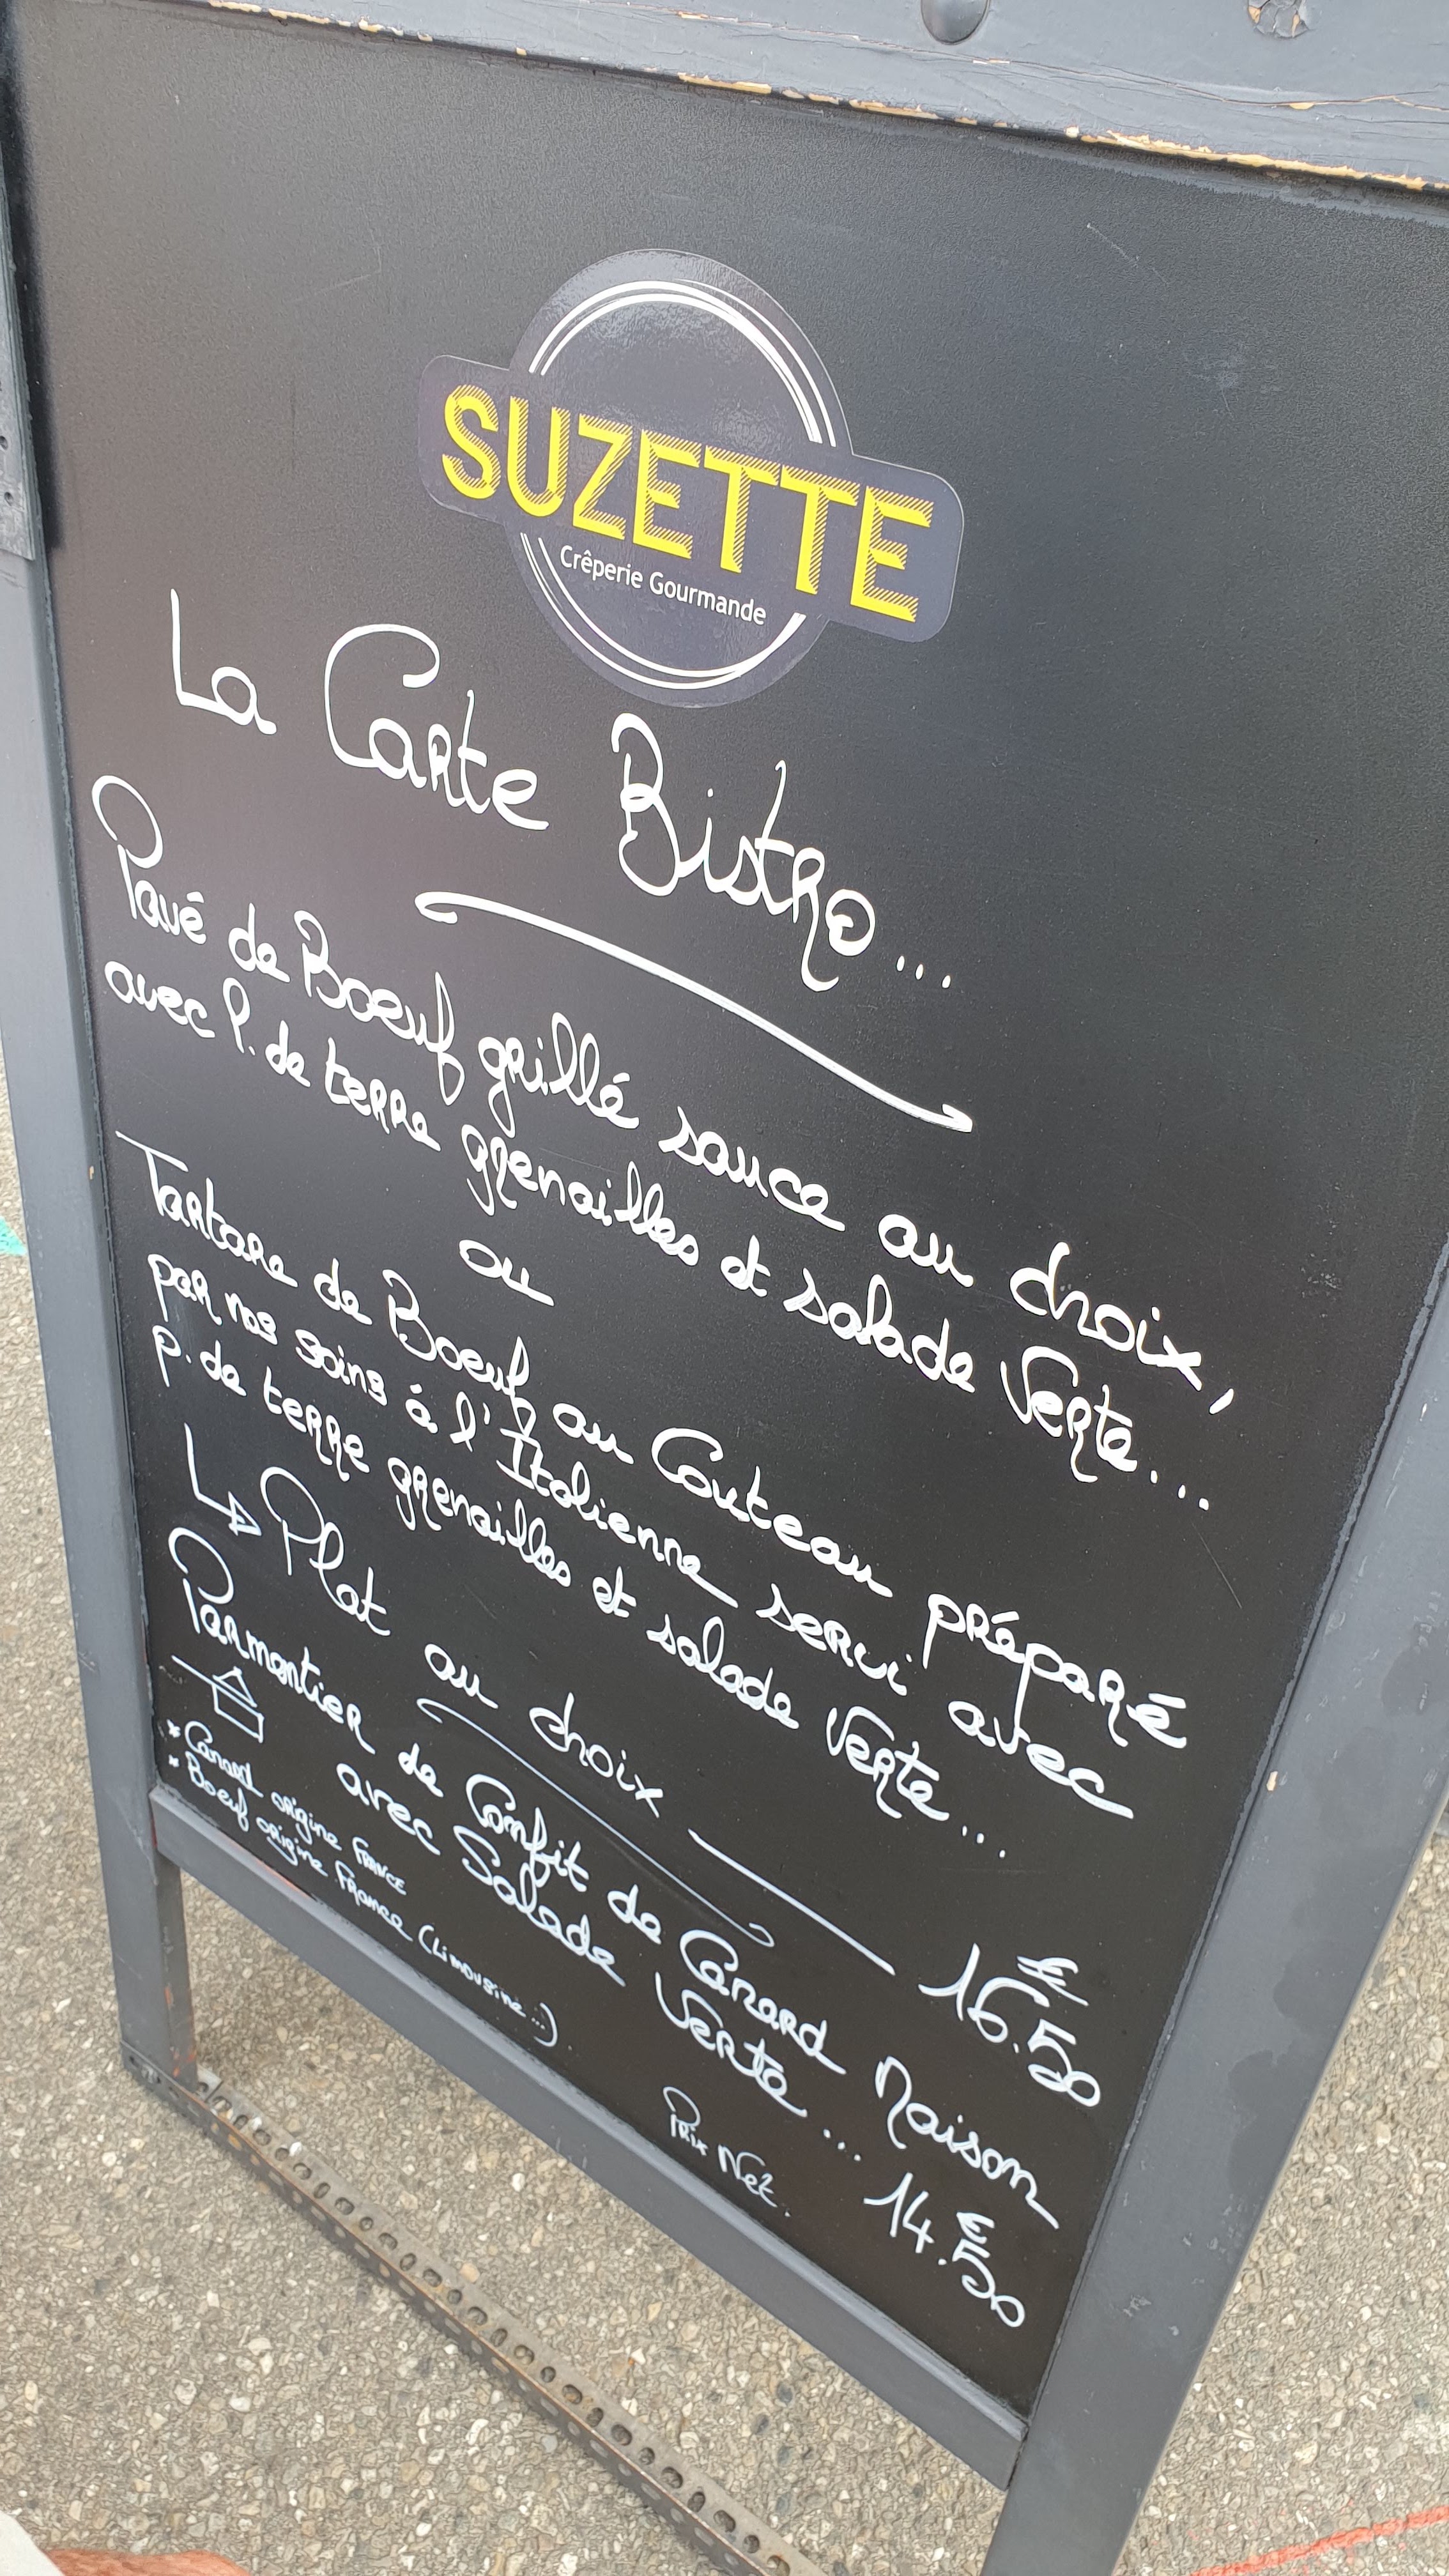 SUZETTE
Crêperie Gourmande
La Carte Bistro...
Pavé de Boeuf grillé sauce au choix,
avec P. de terre grenailles et salade Verte...
ou
Tartare de Boeuf au Couteau préparé
par nos soins à l'Italienne servi avec
p. de terre grenailles et salade Verte...
Plat au choix 16.€50
Parmentier de Confit de Canard Maison
avec Salade Verte... 14.€50
* Canard origine FRANCE
* Boeuf origine France (Limousine...)
Prix Net.